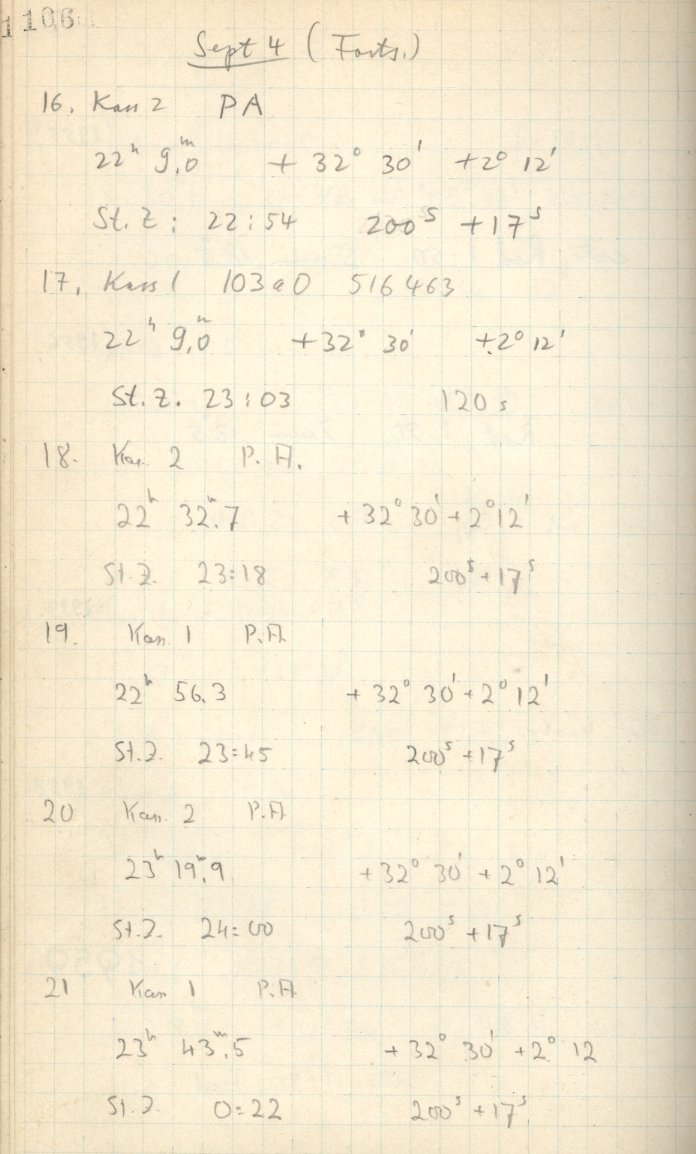 1106
Sept 4 (Forts.)
16. Kass 2 PA
22ʰ 9,ᵐ0 + 32° 30' +2° 12'
St. Z : 22:54 200ˢ +17ˢ
17. Kass 1 103aO 516463
22ʰ 9,ᵐ0 +32° 30' +2° 12'
St. Z. 23:03 120 s
18. Kas. 2 P. A.
22ʰ 32ᵐ.7 + 32° 30' + 2° 12'
St. Z. 23:18 200ˢ + 17ˢ
19. Kass. 1 P.A.
22ʰ 56.3 + 32° 30' + 2° 12'
St. Z. 23:45 200ˢ + 17ˢ
20 Kass. 2 P.A.
23ʰ 19ᵐ.9 +32° 30' + 2° 12'
St. Z. 24:00 200ˢ + 17ˢ
21 Kass 1 P.A
23ʰ 43ᵐ.5 + 32° 30' +2° 12
St. Z 0:22 200ˢ +17ˢ